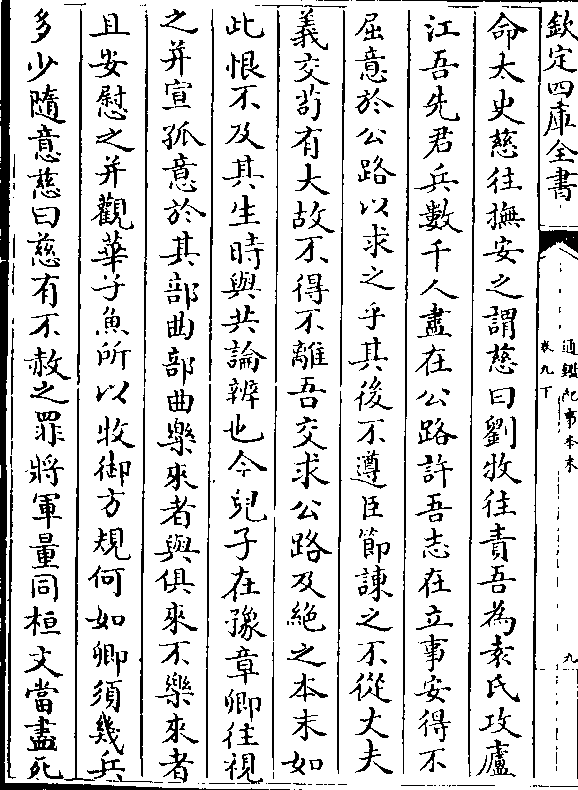 欽定四庫全書
通鑑紀事本末
卷九下
九
命太史慈往撫安之謂慈曰劉牧往責吾為袁氏攻廬
江吾先君兵數千人盡在公路許吾志在立事安得不
屈意於公路以求之乎其後不遵臣節諫之不從丈夫
義交苟有大故不得不離吾交求公路及絶之本末如
此恨不及其生時與共論辨也今兒子在豫章卿往視
之并宣孤意於其部曲部曲樂來者與俱來不樂來者
且安慰之并觀華子魚所以牧御方規何如卿須幾兵
多少隨意慈曰慈有不赦之罪將軍量同桓文當盡死